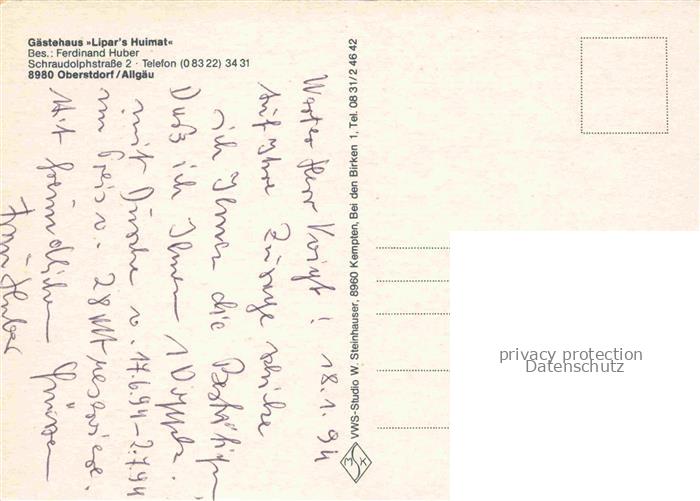 Gästehaus »Lipar's Huimat«
Bes.: Ferdinand Huber
Schraudolphstraße 2 · Telefon (0 83 22) 34 31
8980 Oberstdorf/Allgäu
Werter Herr Voigt! 18.1.94
Auf Ihre Zusage schicke
ich Ihnen die
Daß ich Ihnen 1 Doppelz.
mit Dusche v. 17.6.94-2.7.94
zum Preis v. 28 DM reserviere.
Mit freundlichen Grüssen
Huber
VWS-Studio W. Steinhauser, 8960 Kempten, Bei den Birken 1, Tel. 08 31/2 46 42
MSK
privacy protection
Datenschutz